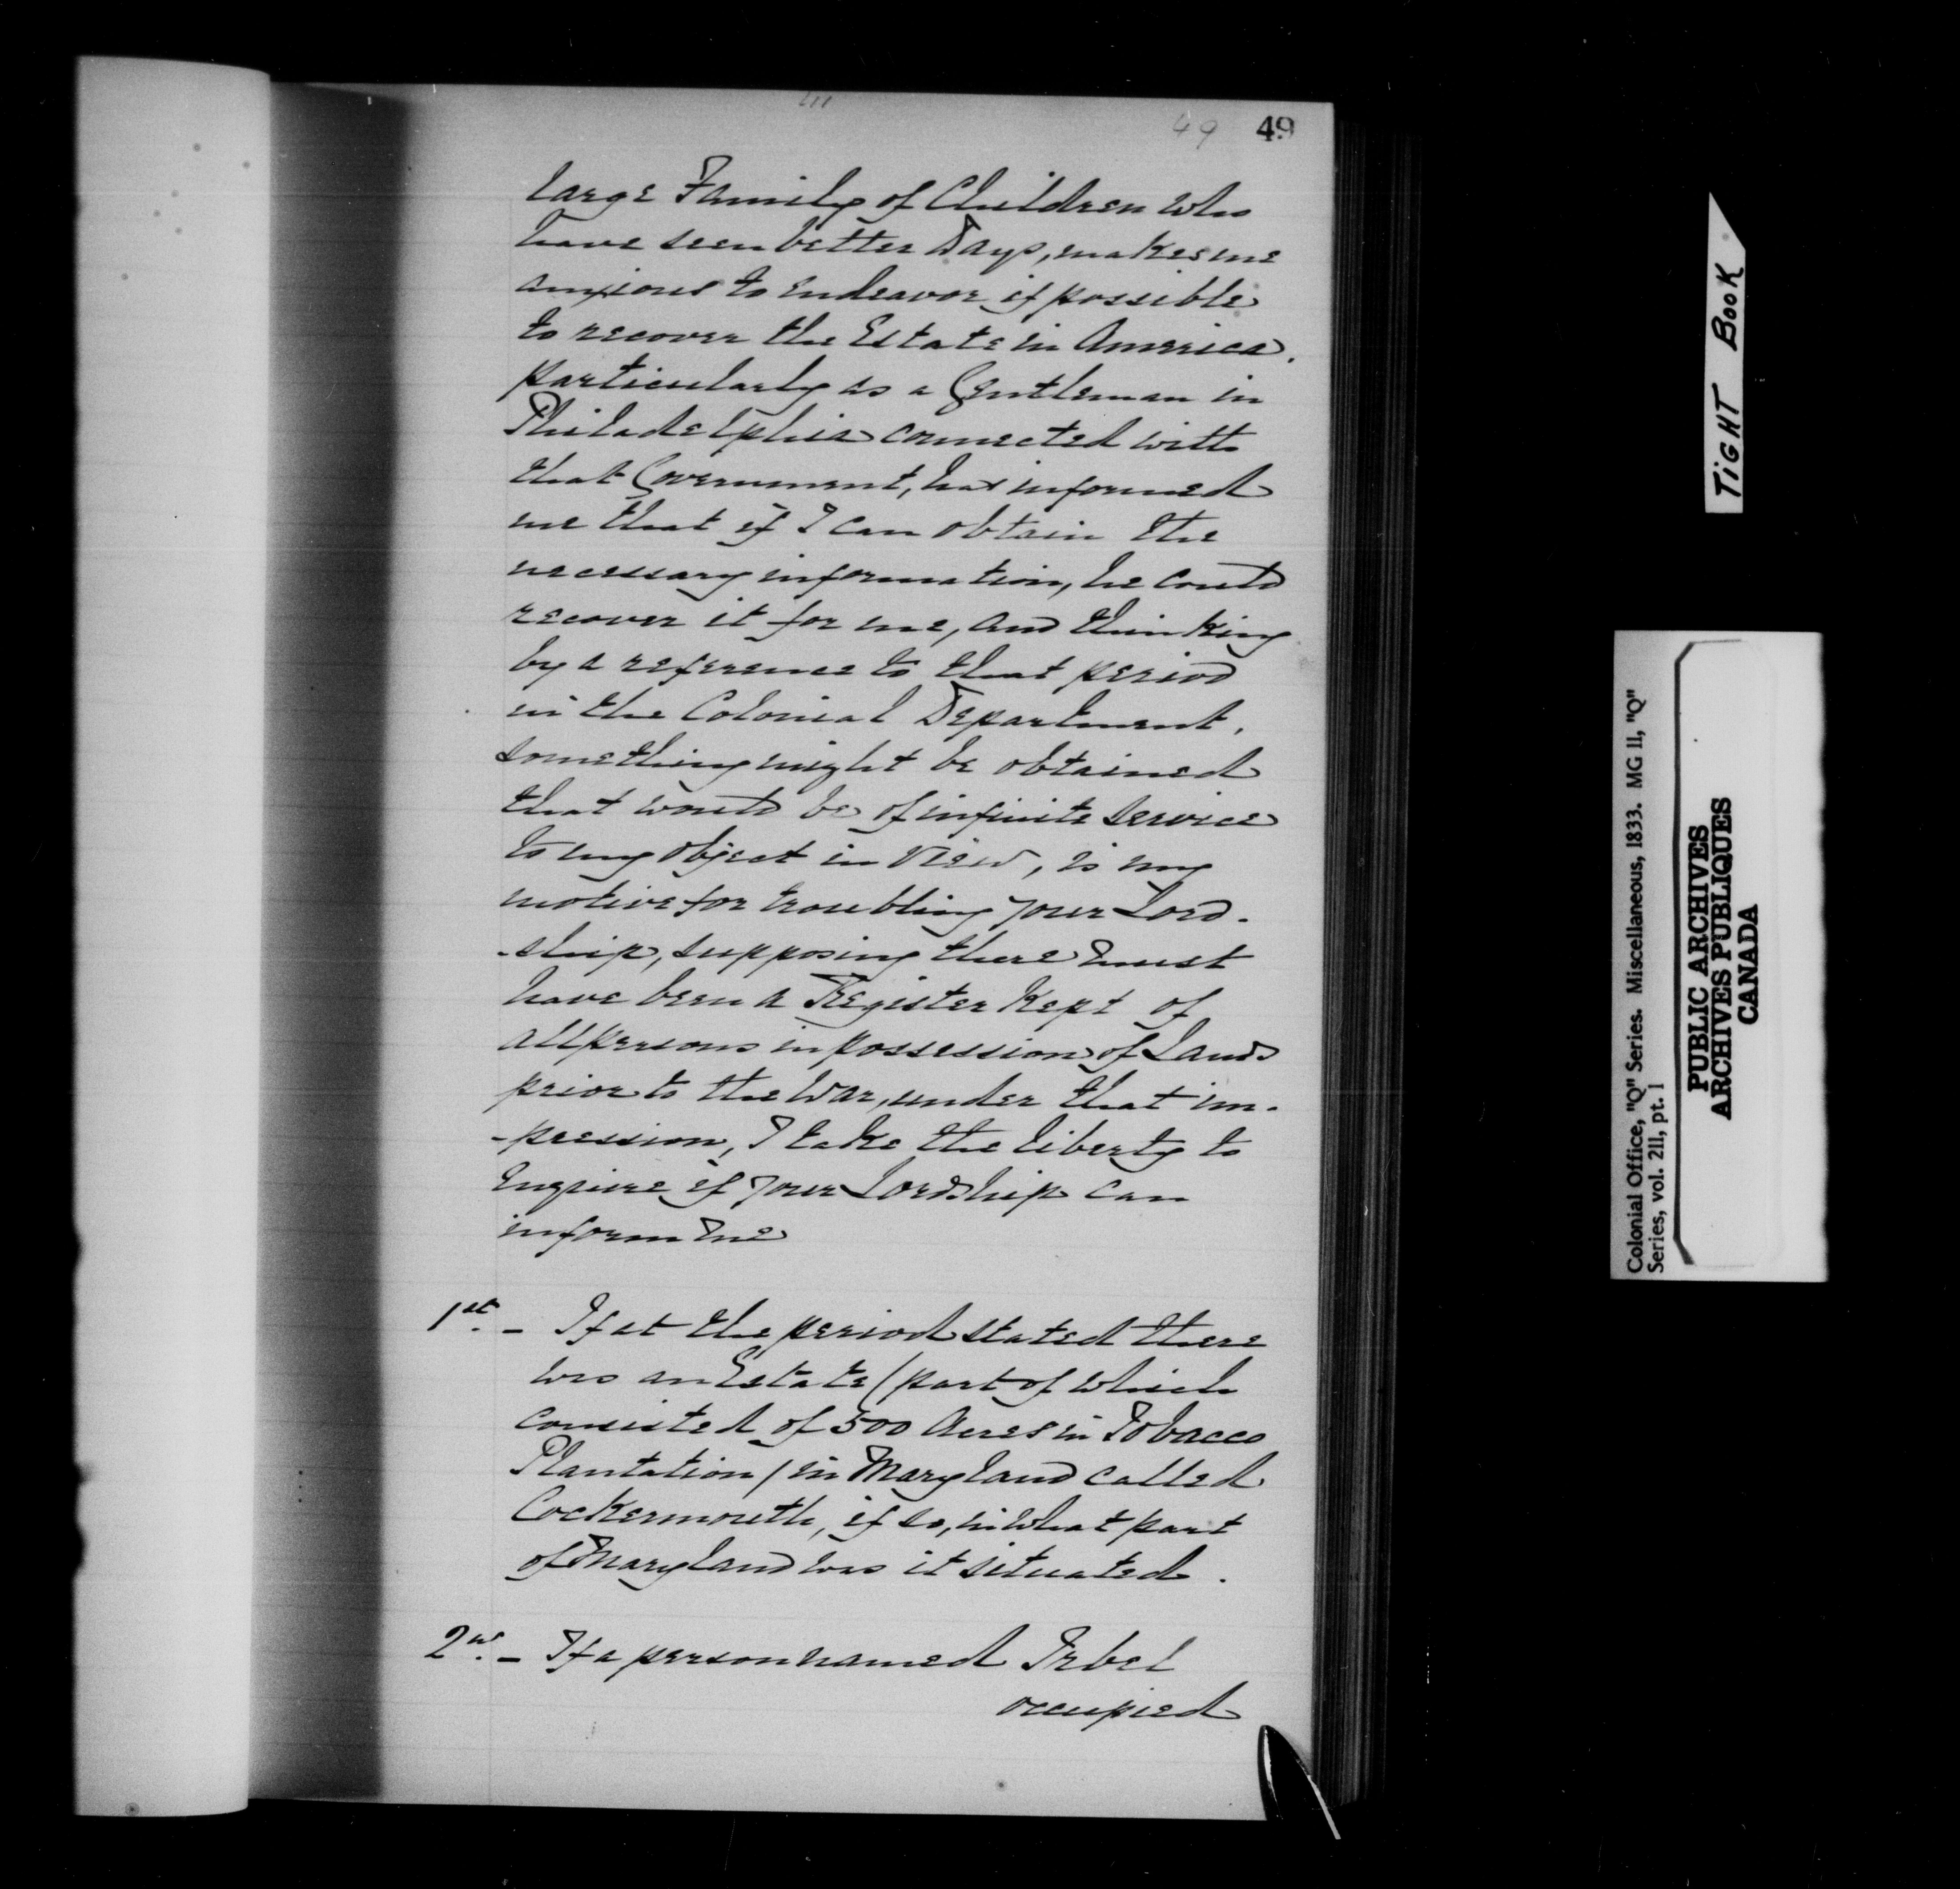 49 49
large Family of Children who
have seen better Days, makes me
anxious to endeavor if possible
to recover the Estate in America.
particularly as a Gentleman in
Philadelphia connected with
that Government, has informed
me that if I can obtain the
necessary information, he could
recover it for me, and thinking
by a reference to that period
in the Colonial Department,
something might be obtained
that would be of infinite service
to my object in view, is my
motive for troubling your Lord-
-ship, supposing there must
have been a Register kept of
all persons in possession of Lands
prior to the War, under that im-
-pression, I take the liberty to
Enquire if your Lordship can
inform me
1st. - If at the period stated there
was an Estate (part of which
consisted of 500 Acres in Tobacco
Plantation) in Maryland called
Cockermouth, if so, in what part
of Maryland was it situated.
2nd. - If a person named
occupied
TIGHT BOOK
Colonial Office, "Q" Series. Miscellaneous, 1833. MG 11, "Q"
Series, vol. 211, pt. 1
PUBLIC ARCHIVES
ARCHIVES PUBLIQUES
CANADA